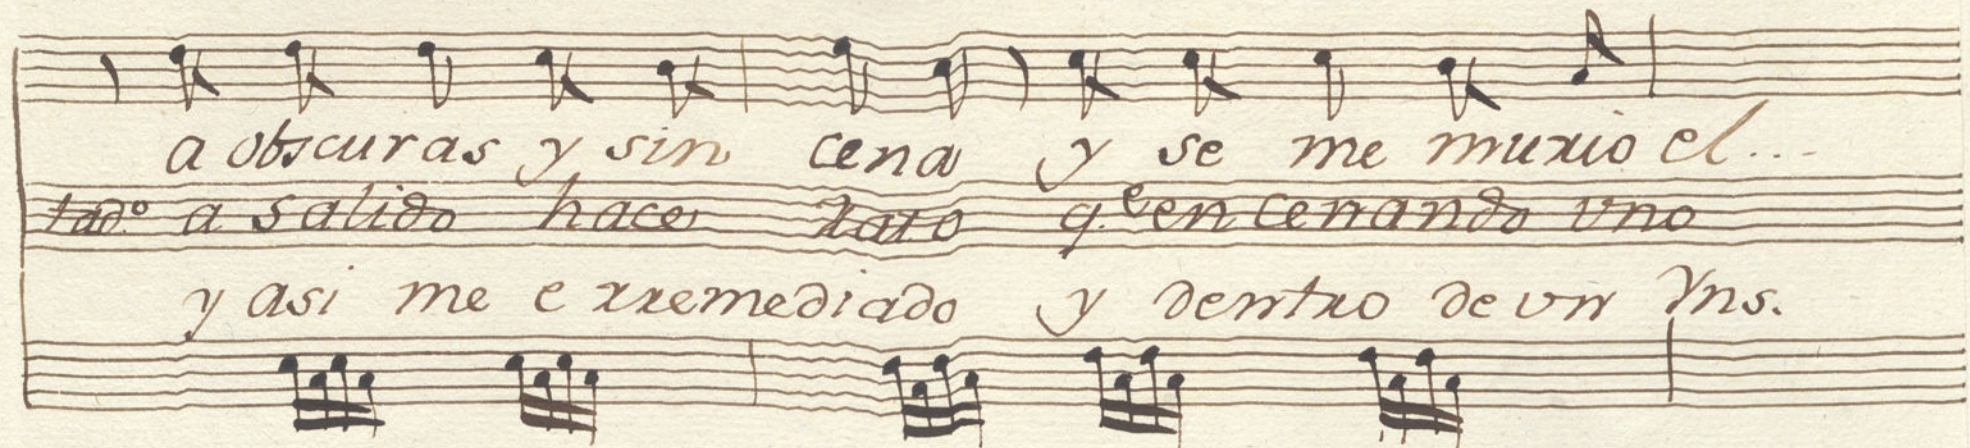 a obscuras y sin cena y se me murio el...
tad.º a salido hace rato q.e en cenando vno
y asi me e rremediado y dentro de vn Yns.